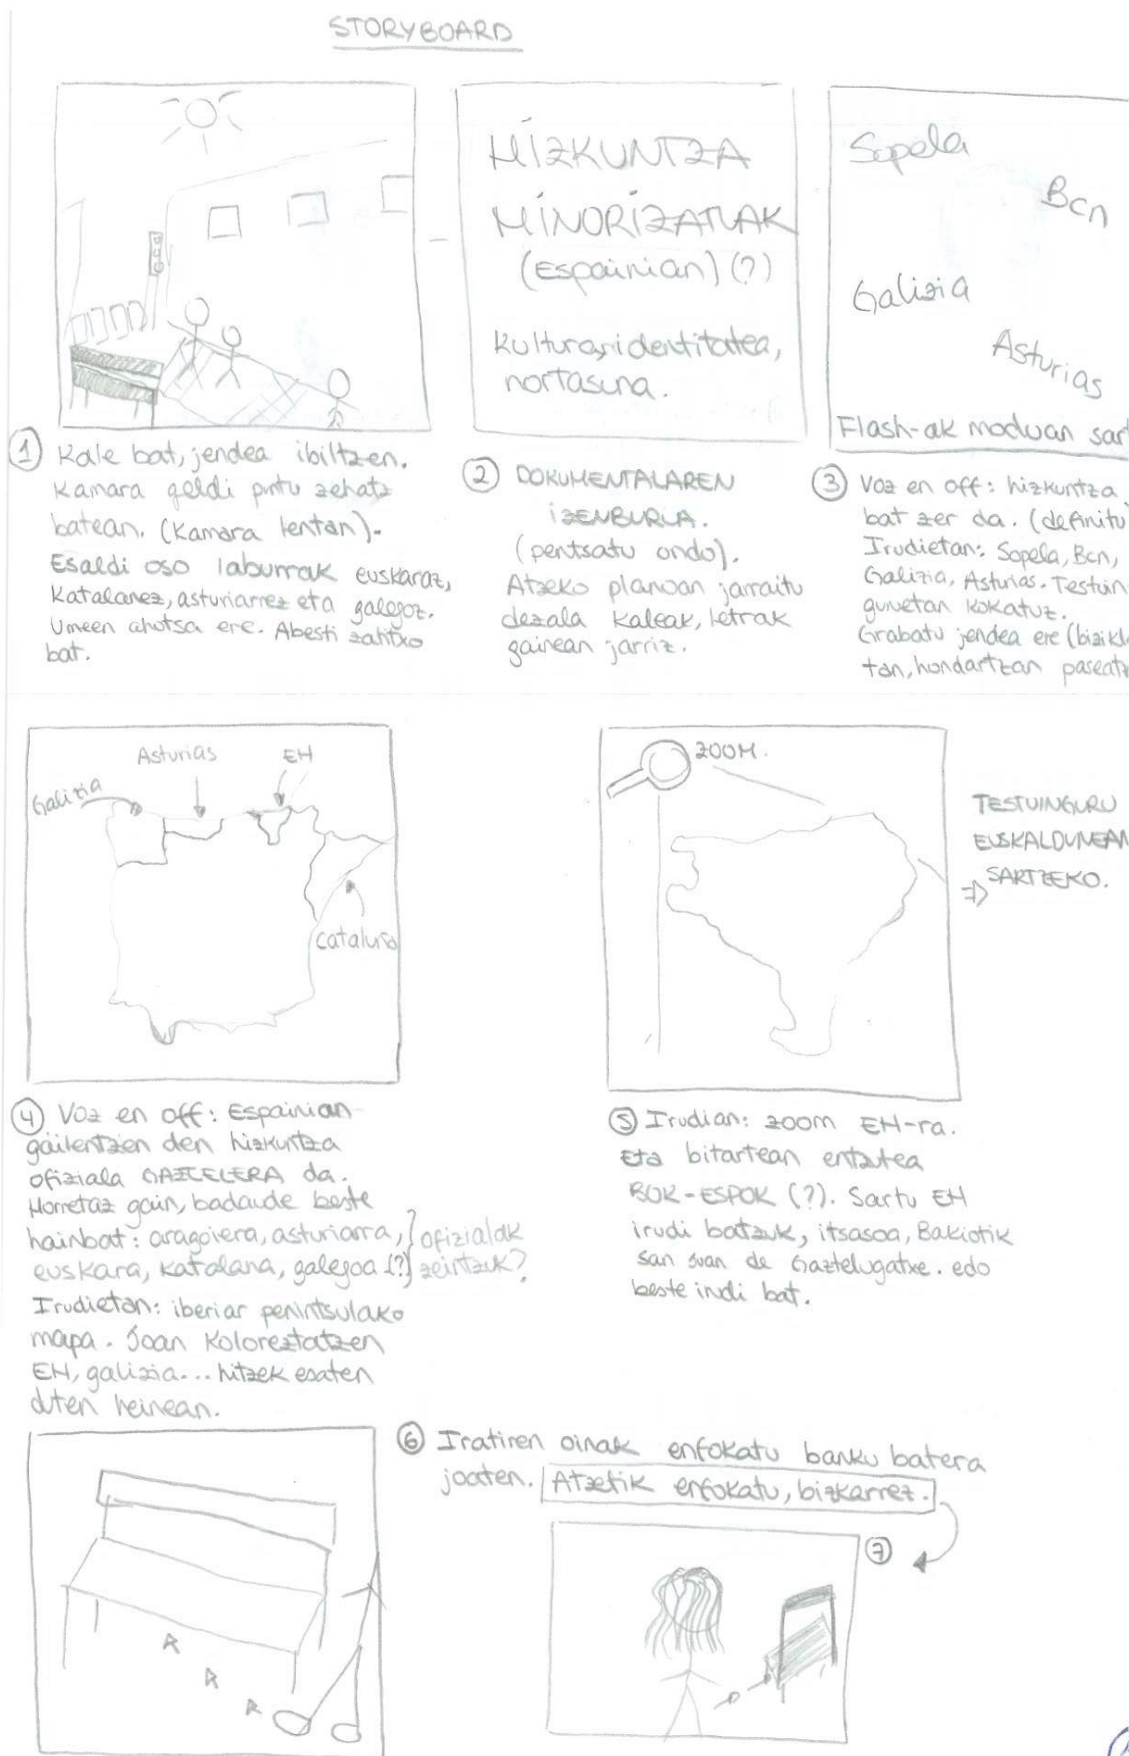 STORYBOARD
HIZKUNTZA
MINORIZATUAK
(Espainian) (?)
Kultura, identitatea,
nortasuna.
Sopela
Bcn
Galizia
Asturias
Flash-ak moduan sart
① Kale bat, jendea ibiltzen.
Kamara geldi puntu zehatz
batean. (Kamara lentan).
Esaldi oso laburrak euskaraz,
Katalanez, asturiarrez eta galegoz.
Umeen ahotsa ere. Abesti zatitxo
bat.
② DOKUMENTALAREN
IZENBURUA.
(pentsatu ondo).
Atzeko planoan jarraitu
dezala kaleak, letrak
gainean jarriz.
③ Voz en off: hizkuntza
bat zer da. (definitu)
Irudietan: Sopela, Bcn,
Galizia, Asturias. Testuin-
guruetan kokatuz.
Grabatu jendea ere (bizikle
tan, hondartzan paseatz
Galizia
Asturias
EH
Cataluña
ZOOM.
TESTUINGURU
EUSKALDUNEAN
⇒ SARTZEKO.
④ Voz en off: Espainian
gailentzen den hizkuntza
ofiziala GAZTELERA da.
Horretaz gain, badaude beste
hainbat: aragoiera, asturiarra, } ofizialak
euskara, katalana, galegoa (?) } zeintzuk?
Irudietan: iberiar penintsulako
mapa. Joan Koloreztatzen
EH, galizia... hitzek esaten
duten heinean.
⑤ Irudian: zoom EH-ra.
Eta bitartean entzutea
BOK-ESPOK (?). Sartu EH
irudi batzuk, itsasoa, Bakiotik
san Juan de Gaztelugatxe. edo
beste irudi bat.
⑥ Iratiren oinak enfokatu banku batera
joaten. Atzetik enfokatu, bizkarrez.
⑦